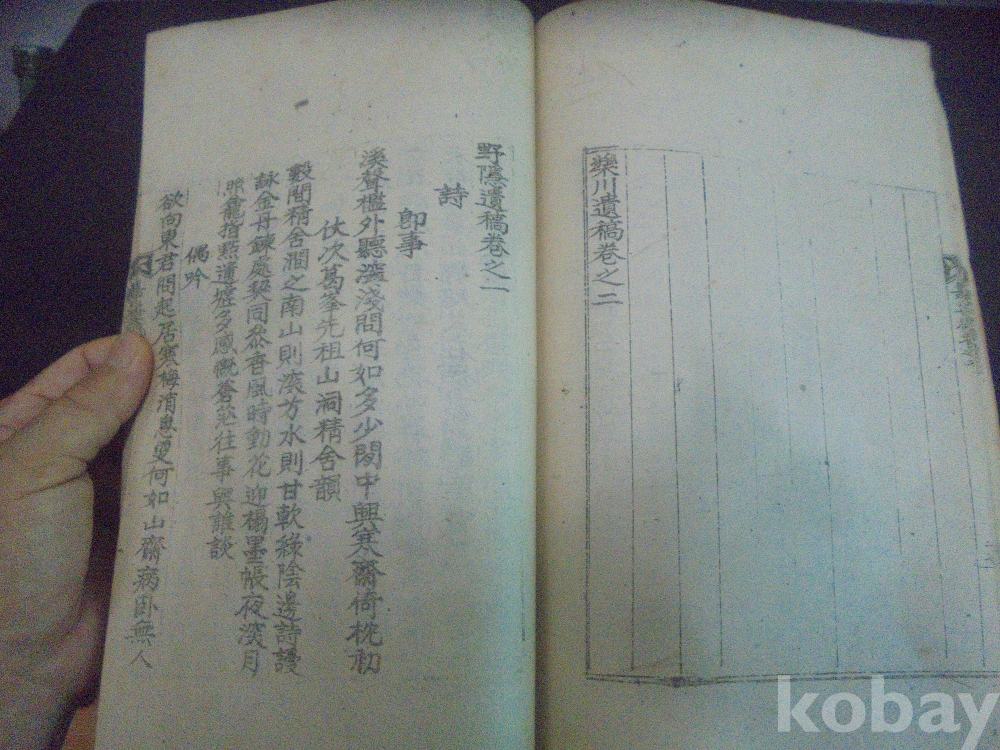 樂川遺稿卷之二
野隱遺稿卷之一
詩
卽事
溪聲檻外聽深淺問何如多少閑中興寒齋倚枕初
伏次葛峯先祖山洞精舍韻
數間精舍澗之南山則深方水則甘軟綠陰邊詩謾
詠金丹鍊處契同參香風時動花迎榻墨帳夜深月
照龕指點遺墟多感慨蒼茫往事與誰談
偶吟
欲向東君問起居寒梅消息更何如山齋病臥無人
kobay